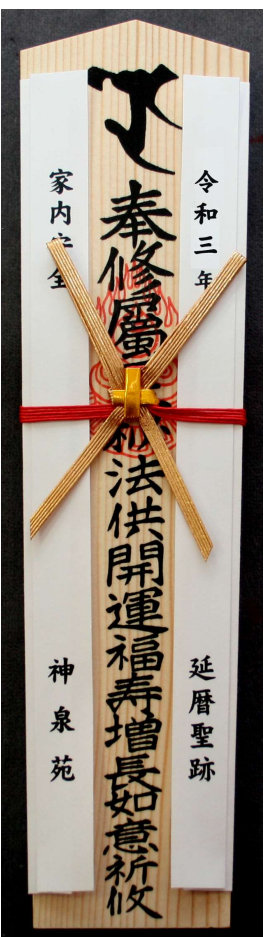 令和三年
延暦聖跡
奉修属星秘法供開運福寿増長如意祈攸
家内安全
神泉苑